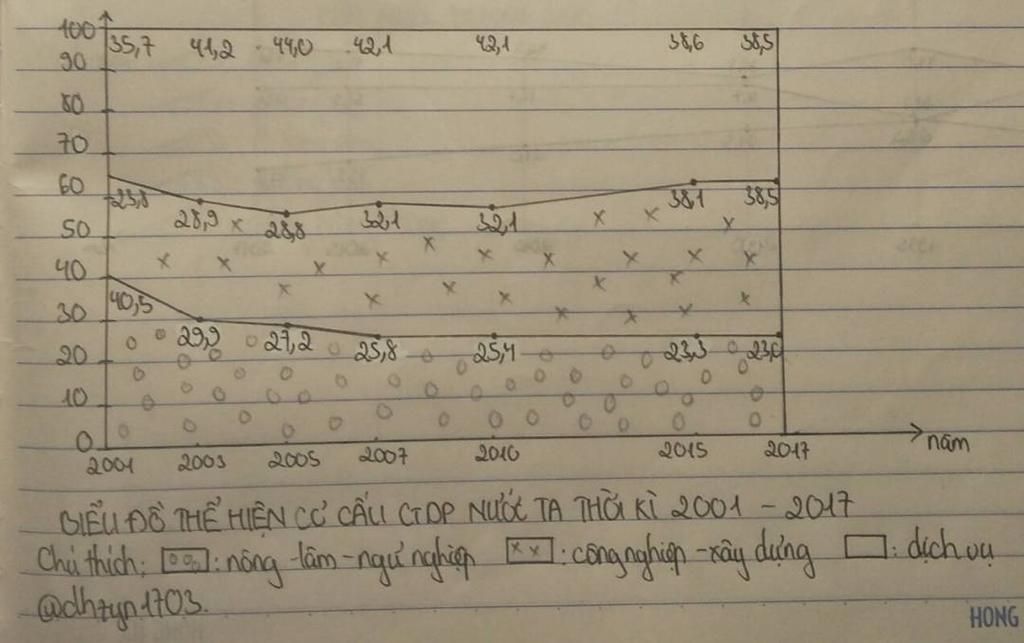 100
35,7 41,2 44,0 42,1 42,1 38,6 38,5
90
80
70
60
23,8 28,9 28,8 32,1 32,1 38,1 38,5
50
40
40,5
30
29,9 27,2 25,8 25,4 23,3 23,0
20
10
0
2001 2003 2005 2007 2010 2015 2017 năm
BIỂU ĐỒ THỂ HIỆN CƠ CẤU GDP NƯỚC TA THỜI KÌ 2001 - 2017
Chú thích: : nông-lâm-ngư nghiệp : công nghiệp-xây dựng : dịch vụ
HONG